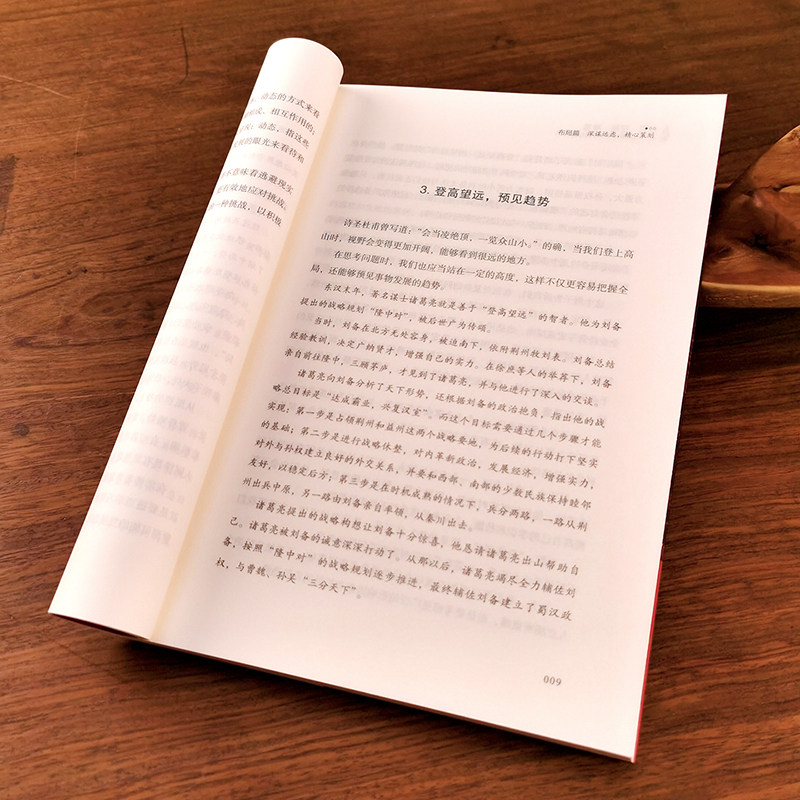 动态的方式来看
相互作用的；
动态，指这些
的眼光来看待和
意味着逃避现实
有效地应对挑战。
一种挑战，以积极
布局篇 深谋远虑，精心策划
3. 登高望远，预见趋势
诗圣杜甫曾写道：“会当凌绝顶，一览众山小。”的确，当我们登上高
山时，视野会变得更加开阔，能够看到很远的地方。
在思考问题时，我们也应当站在一定的高度，这样不仅更容易把握全
局，还能够预见事物发展的趋势。
东汉末年，著名谋士诸葛亮就是善于“登高望远”的智者。他为刘备
提出的战略规划“隆中对”，被后世广为传颂。
当时，刘备在北方无处容身，被迫南下，依附荆州牧刘表。刘备总结
经验教训，决定广纳贤才，增强自己的实力。在徐庶等人的举荐下，刘备
亲自前往隆中，三顾茅庐，才见到了诸葛亮，并与他进行了深入的交谈。
诸葛亮向刘备分析了天下形势，还根据刘备的政治抱负，指出他的战
略总目标是“达成霸业，兴复汉室”。而这个目标需要通过几个步骤才能
实现：第一步是占领荆州和益州这两个战略要地，为后续的行动打下坚实
的基础；第二步是进行战略休整，对内革新政治，发展经济，增强实力，
对外与孙权建立良好的外交关系，并要和西部、南部的少数民族保持睦邻
友好，以稳定后方；第三步是在时机成熟的情况下，兵分两路，一路从荆
州出兵中原，另一路由刘备亲自率领，从秦川出击。
诸葛亮提出的战略构想让刘备十分惊喜，他恳请诸葛亮出山帮助自
己。诸葛亮被刘备的诚意深深打动了。从那以后，诸葛亮竭尽全力辅佐刘
备，按照“隆中对”的战略规划逐步推进，最终辅佐刘备建立了蜀汉政
权，与曹魏、孙吴“三分天下”。
009